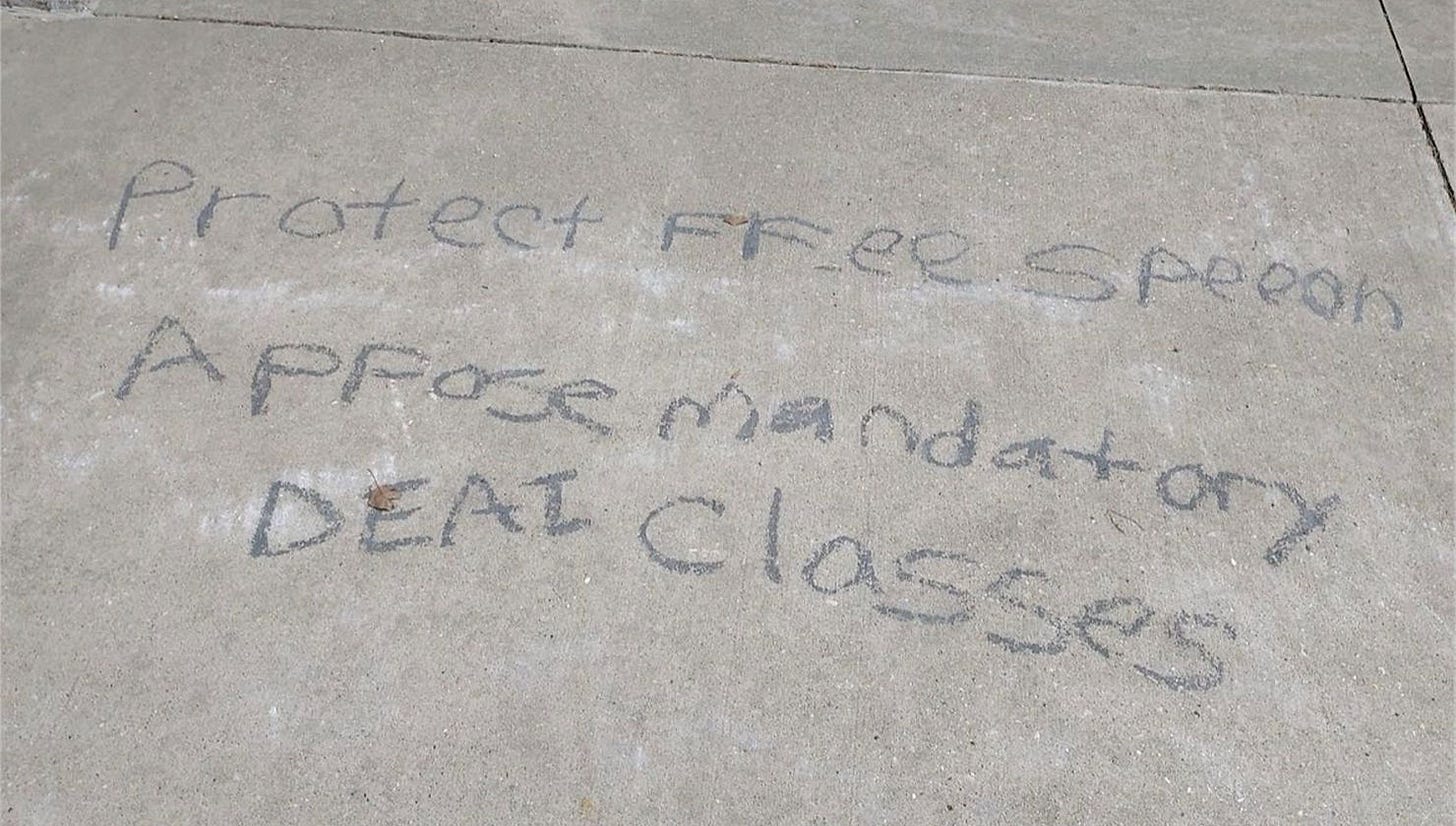 Protect FFee Speeon
Appose mandatory
DEAI Classes